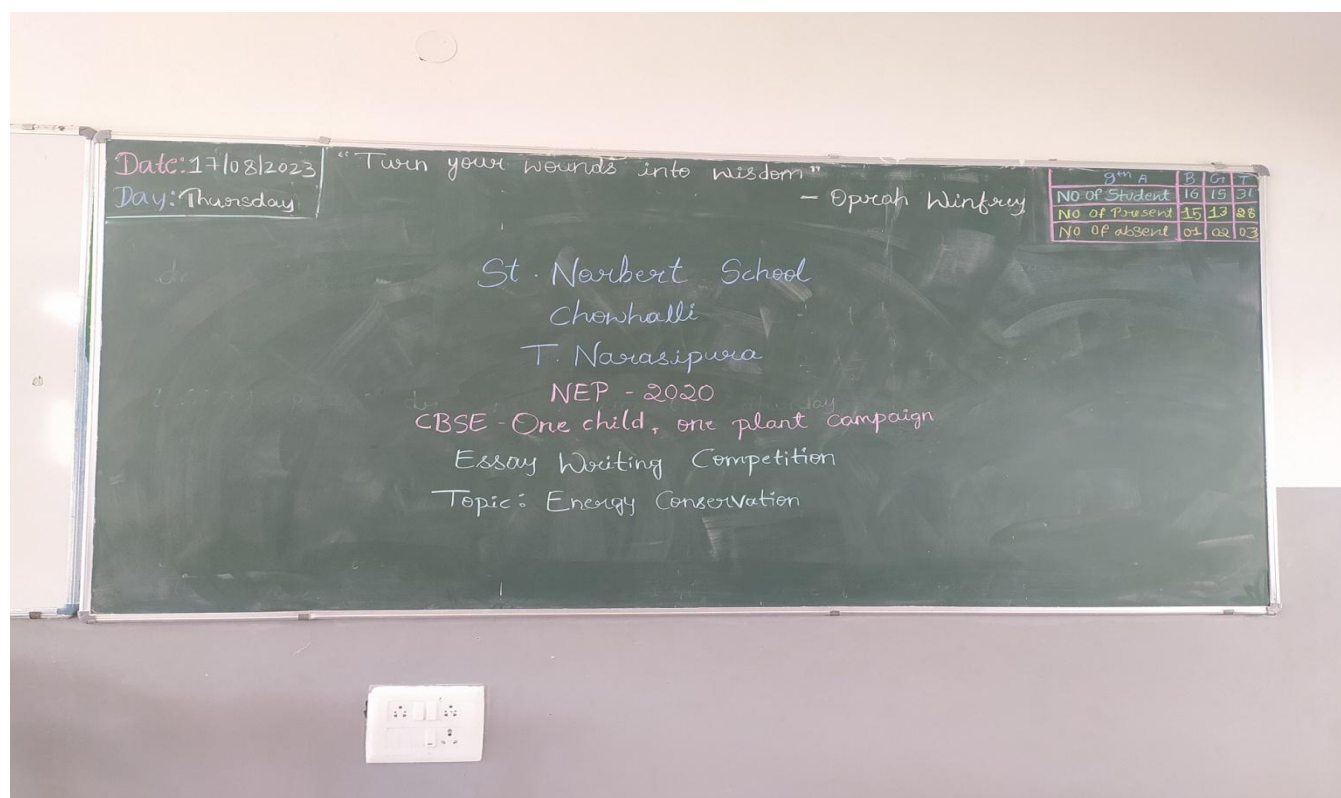 Date: 17/08/2023
Day: Thursday
"Turn your wounds into wisdom"
- Oprah Winfrey
9th A B G T
No of Student 16 15 31
No of Present 15 13 28
No of absent 01 02 03
St. Norbert School
Chowhalli
T. Narasipura
NEP - 2020
CBSE - One child, one plant campaign
Essay Writing Competition
Topic: Energy Conservation